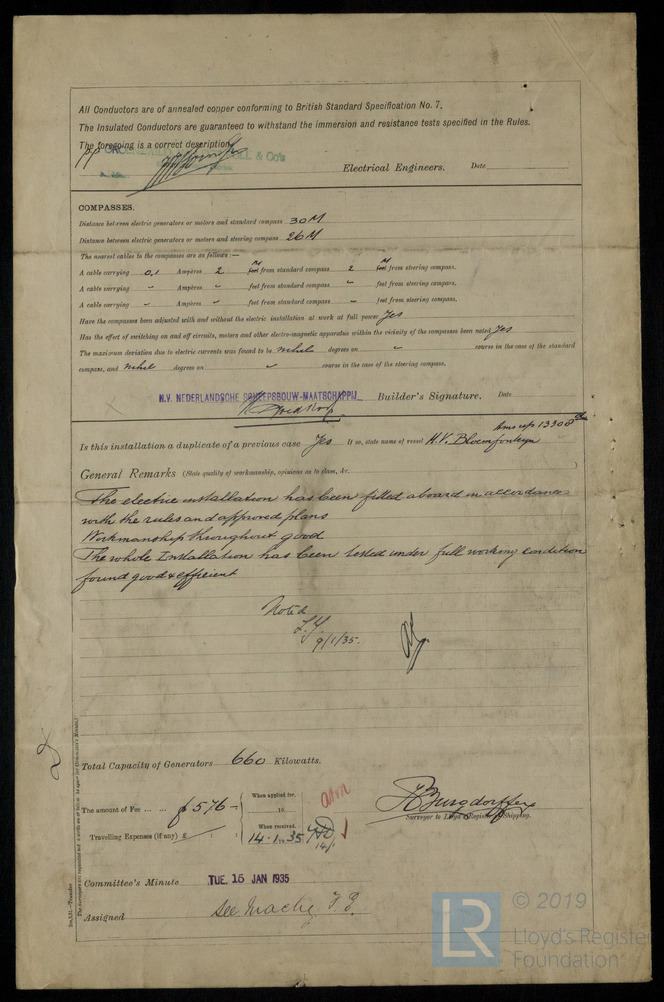 All Conductors are of annealed copper conforming to British Standard Specification No. 7.
The Insulated Conductors are guaranteed to withstand the immersion and resistance tests specified in the Rules.
The foregoing is a correct description.
pp & Co's
Electrical Engineers. Date
COMPASSES.
Distance between electric generators or motors and standard compass 30 M
Distance between electric generators or motors and steering compass 26 M
The nearest cables to the compasses are as follows:—
A cable carrying 0,1 Ampères 2 M feet from standard compass 2 M feet from steering compass.
A cable carrying " Ampères " feet from standard compass " feet from steering compass.
A cable carrying " Ampères " feet from standard compass " feet from steering compass.
Have the compasses been adjusted with and without the electric installation at work at full power Yes
Has the effect of switching on and off circuits, motors and other electro-magnetic apparatus within the vicinity of the compasses been noted Yes
The maximum deviation due to electric currents was found to be nihil degrees on " course in the case of the standard
compass, and nihil degrees on " course in the case of the steering compass.
N.V. NEDERLANDSCHE SCHEEPSBOUW-MAATSCHAPPIJ Builder's Signature. Date
Ams rpt 13308
Is this installation a duplicate of a previous case Yes If so, state name of vessel M.V. Bloemfontein
General Remarks (State quality of workmanship, opinions as to class, &c.
The electric installation has been fitted aboard in accordance
with the rules and approved plans
Workmanship throughout good
The whole Installation has been tested under full working condition
found good & efficient
Noted
9/1/35.
Total Capacity of Generators 660 Kilowatts.
The amount of Fee ... ... f 576 – When applied for, 19
Travelling Expenses (if any) £ : : When received, 14.1.1935
14/1
R Burgdorffer
Surveyor to Lloyd's Register of Shipping.
Committee's Minute TUE. 15 JAN 1935
Assigned See Machy
Im.131.—Transfer
LR © 2019
Lloyd's Register
Foundation